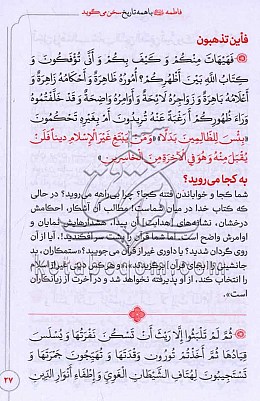 فاطمه با همه تاریخ سخن می‌گوید
فأین تذهبون
فَهَیْهَاتَ مِنْکُمْ وَ کَیْفَ بِکُمْ وَ أَنَّى تُؤْفَکُونَ وَ
کِتَابُ اللَّهِ بَیْنَ أَظْهُرِکُمْ؟ أُمُورُهُ ظَاهِرَةٌ وَ أَحْکَامُهُ زَاهِرَةٌ وَ
أَعْلَامُهُ بَاهِرَةٌ وَ زَوَاجِرُهُ لَائِحَةٌ وَ أَوَامِرُهُ وَاضِحَةٌ وَ قَدْ خَلَّفْتُمُوهُ
وَرَاءَ ظُهُورِکُمْ أَ رَغْبَةً عَنْهُ تُرِیدُونَ أَمْ بِغَیْرِهِ تَحْکُمُونَ
«بِئْسَ لِلظَّالِمِینَ بَدَلًا» «وَ مَنْ یَبْتَغِ غَیْرَ الْإِسْلَامِ دِیناً فَلَنْ
یُقْبَلَ مِنْهُ وَ هُوَ فِی الْآخِرَةِ مِنَ الْخَاسِرِینَ».
به کجا می‌روید؟
شما کجا و خواباندن فتنه کجا؟ چرا بیراهه می‌روید؟ در حالی
که کتاب خدا در میان شماست! مطالب آن آشکار، احکامش
درخشان، نشانه‌های [هدایت] آن پیدا، هشدارهایش نمایان و
اوامرش واضح است. اما شما قرآن را پشت سر افکندید!. آیا از آن
روی گردان شدید؟ یا داوری غیر از قرآن می‌جویید؟ «ستمکاران، بد
جانشینی را بجای قرآن برگزیدند»، «و هر کس دینی غیر از اسلام
را انتخاب کند، از او پذیرفته نخواهد شد و در آخرت از زیانکاران
است».
ثُمَّ لَمْ تَلْبَثُوا إِلَّا رَیْثَ أَنْ تَسْکُنَ نَفْرَتُهَا وَ یَسْلَسَ
قِیَادُهَا ثُمَّ أَخَذْتُمْ تُورُونَ وَقْدَتَهَا وَ تُهَیِّجُونَ جَمْرَتَهَا وَ
تَسْتَجِیبُونَ لِهُتَافِ الشَّیْطَانِ الْغَوِیِّ وَ إِطْفَاءِ أَنْوَارِ الدِّینِ
۲۷